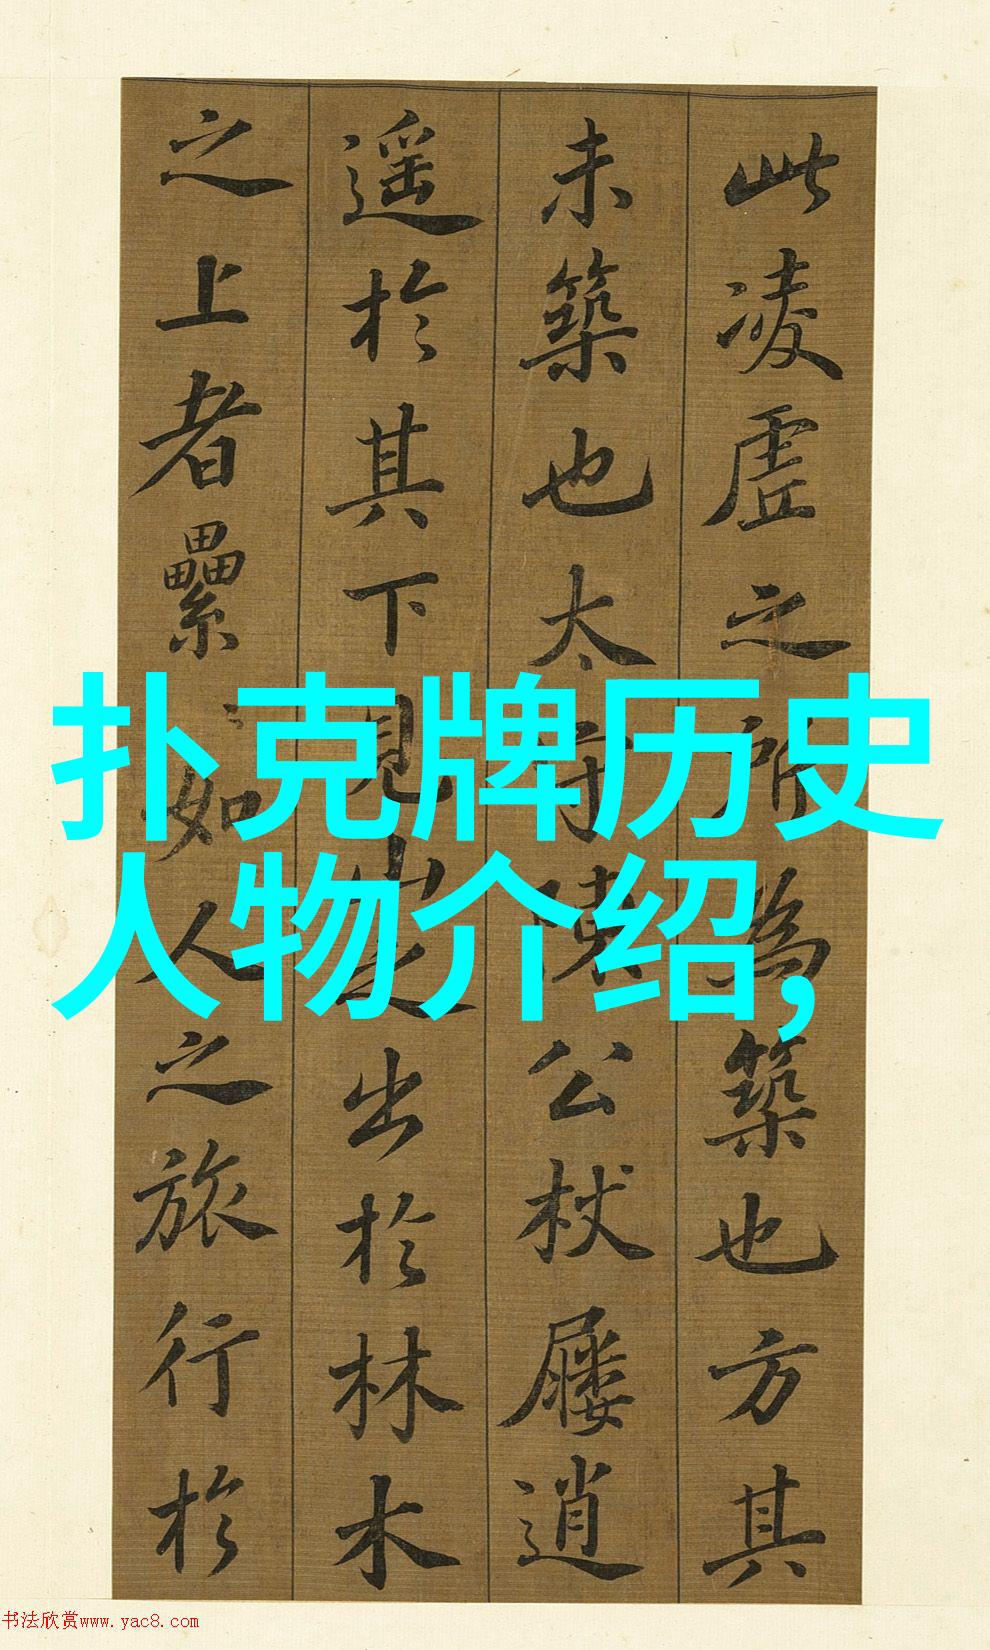 此凌虚之所為築也方其
未築也太守陳公杖屨逍
遥於其下見山之出於林木
之上者纍纍如人之旅行於
扑克牌历史
人物介绍,
书法欣赏www.yac8.com